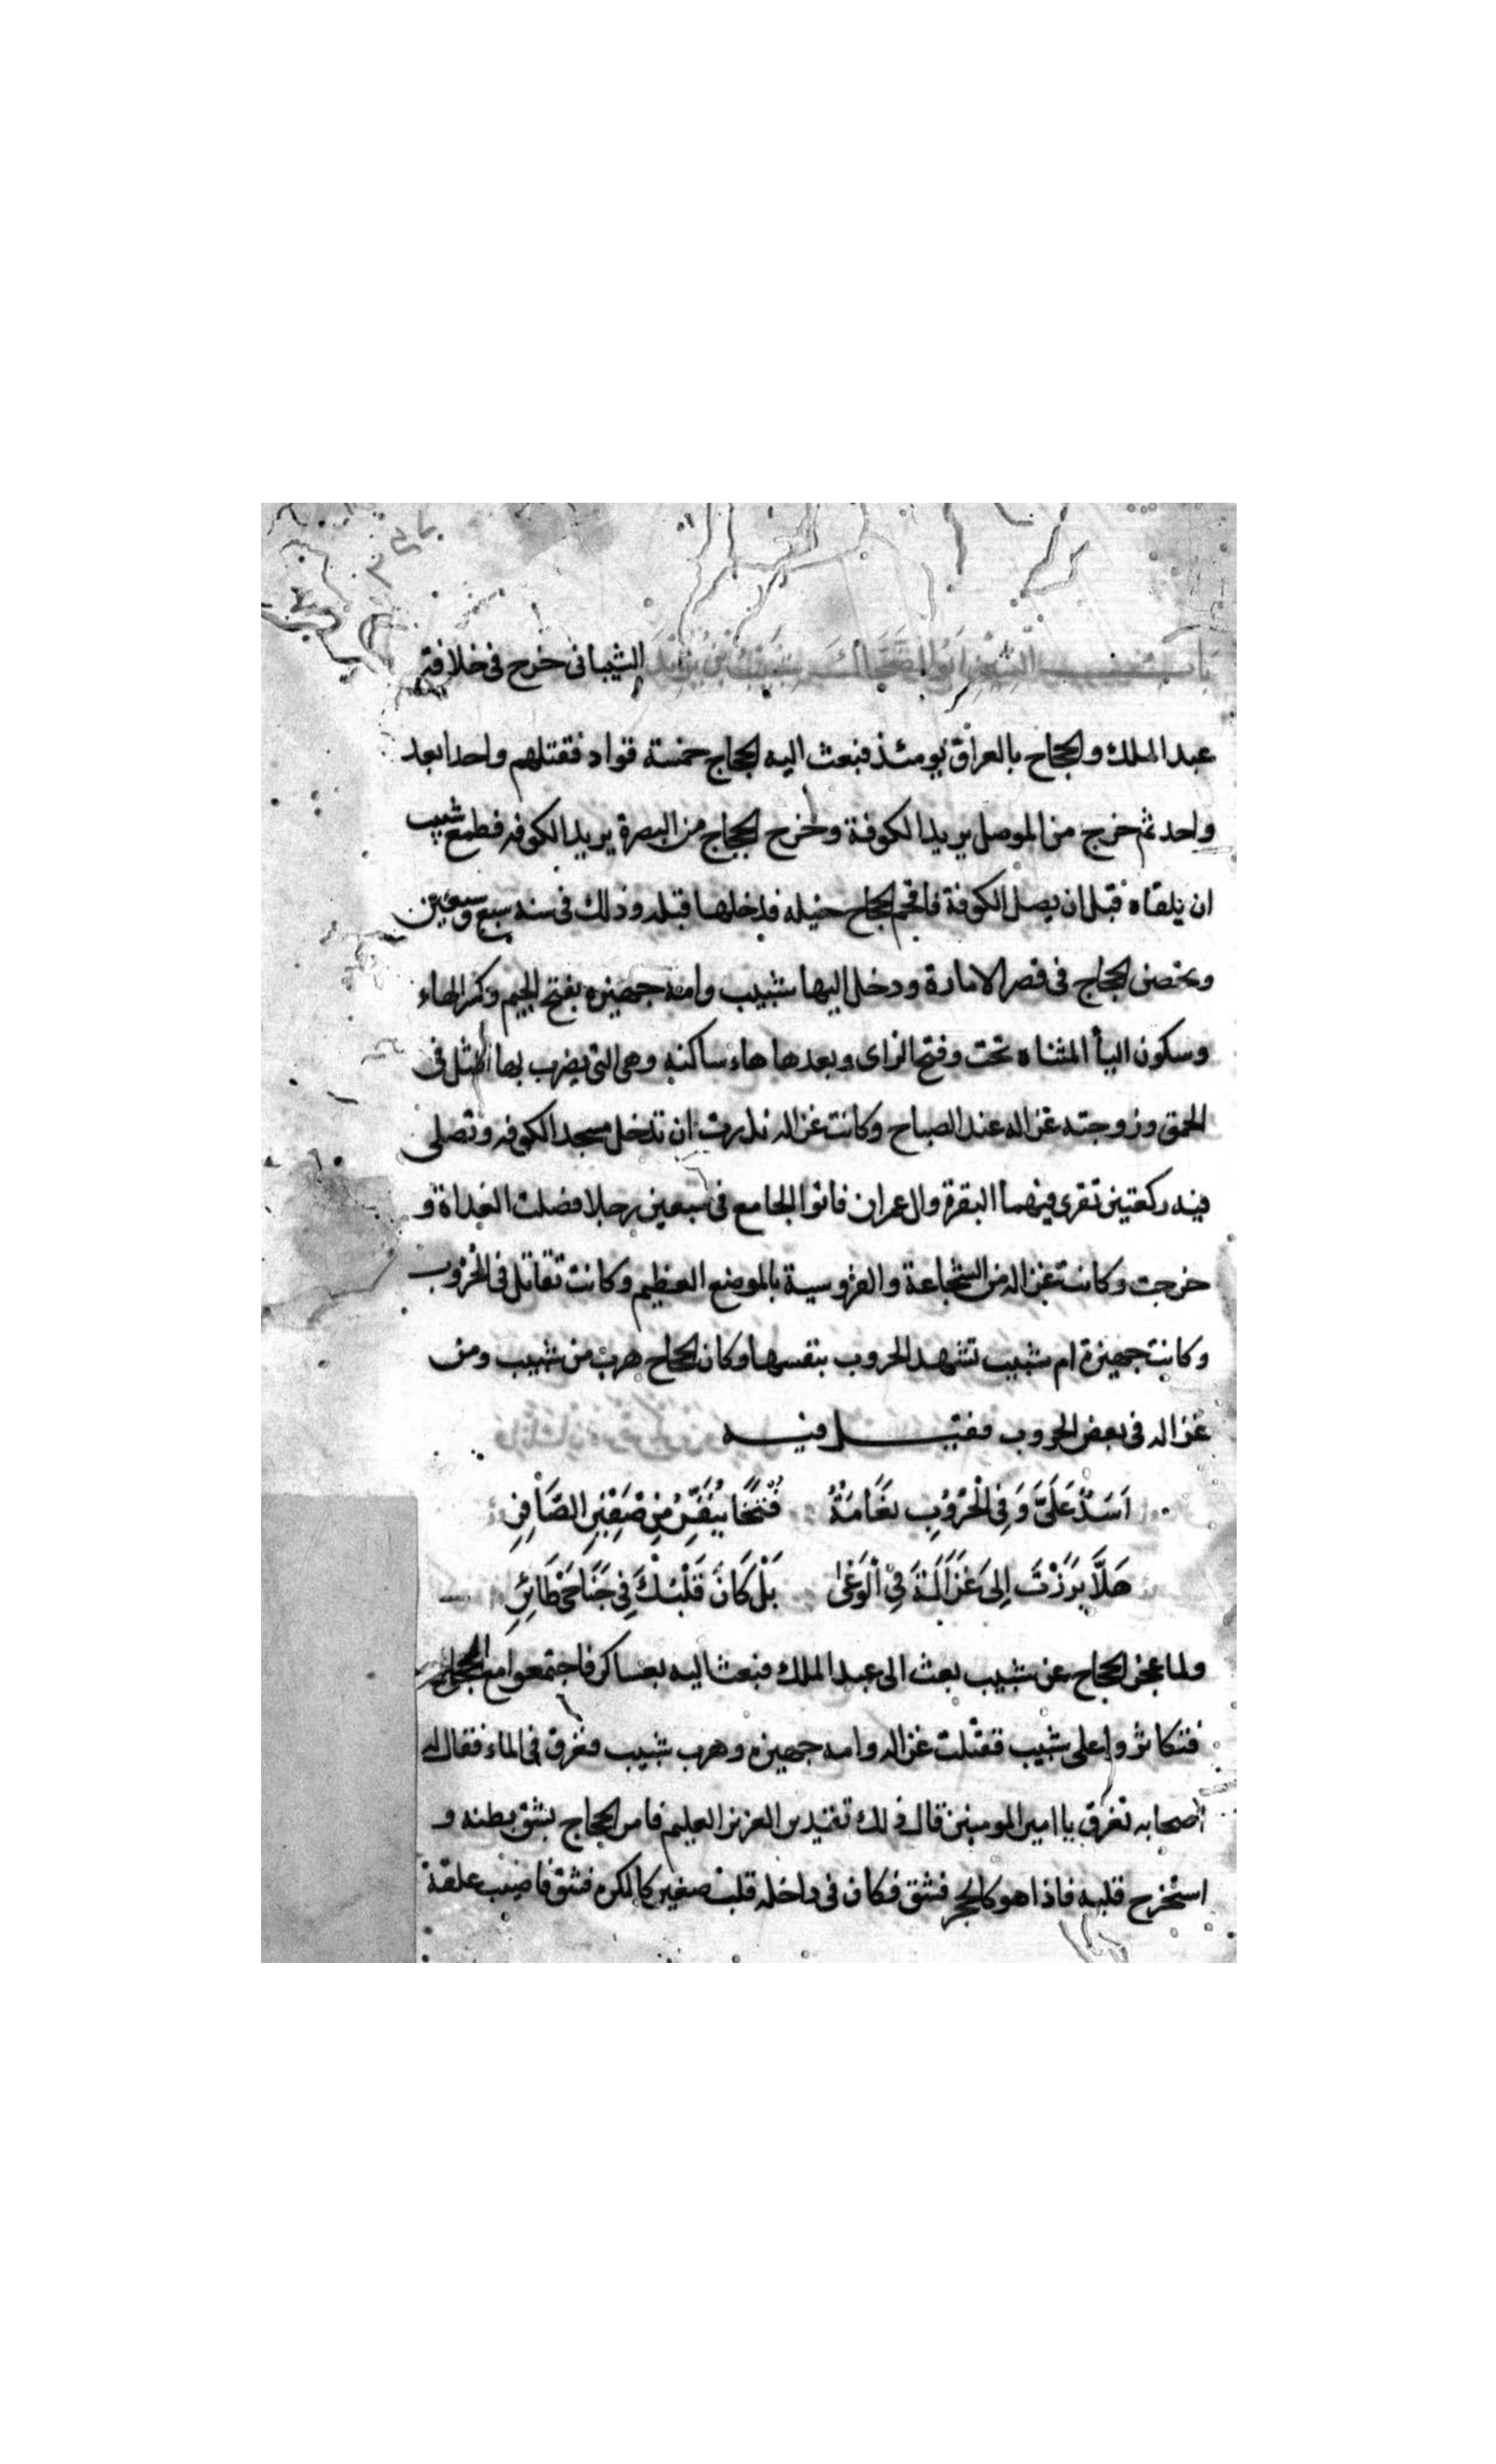 باب شبيب الشين ابو الضحاك شبيب بن يزيد الشيبانى خرج فى خلافة
عبد الملك والحجاج بالعراق يومئذ فبعث اليه الحجاج خمسة قواد فقتلهم واحدا بعد
واحد ثم خرج من الموصل يريد الكوفة وخرج الحجاج من البصرة يريد الكوفه فطمع شبيب
ان يلقاه قبل ان يصل الكوفة فاقحم الحجاج خيله فدخلها قبله وذلك فى سنه سبع وسبعين
وتحصن الحجاج فى قصر الامارة ودخل اليها شبيب وامه جهيزه بفتح الجيم وكسر الهاء
وسكون اليأ المثناه تحت وفتح الزاى وبعدها هاء ساكنه وهى التى يضرب بها المثل فى
الحمق وزوجته غزاله عند الصباح وكانت غزاله نذرت ان تدخل مسجد الكوفه وتصلى
فيه ركعتين تقرى فيهما البقرة وال عمران فاتوا الجامع فى سبعين رجلا فصلت الغداة و
خرجت وكانت غزاله من الشجاعة والفروسية بالموضع العظيم وكانت تقاتل فى الحروب
وكانت جهيزة ام شبيب تشهد الحروب بنفسها وكان الحجاج هرب من شبيب ومن
غزاله فى بعض الحروب فقيل فيه
اَسَدٌ عَلَىَّ وَفِى الْحُرُوْبِ نَعَامَةٌ فَتْخَا يُنَفِّرُ مِنْ صَفِيْرِ الصَّافِرِ
هَلَّا بَرَزْتَ اِلىَ غَزَالَةَ فِى الْوَغَىٰ بَلْ كَانَ قَلْبُكَ فِى جَنَاحَىْ طَائِرِ
ولما عجز الحجاج عن شبيب بعث الى عبد الملك فبعث اليه بعساكر فاجتمعوا مع الحجاج
فتكاثروا على شبيب فقتلت غزاله وامه جهيزه وهرب شبيب فغرق فى الماء فقال له
اصحابه تغرق يا امير المومنين قال ذلك تقدير العزيز العليم فامر الحجاج بشق بطنه و
استخرج قلبه فاذا هو كالحجر فشق فكان فى داخله قلب صغير كالكره فشق فاصيب علقة